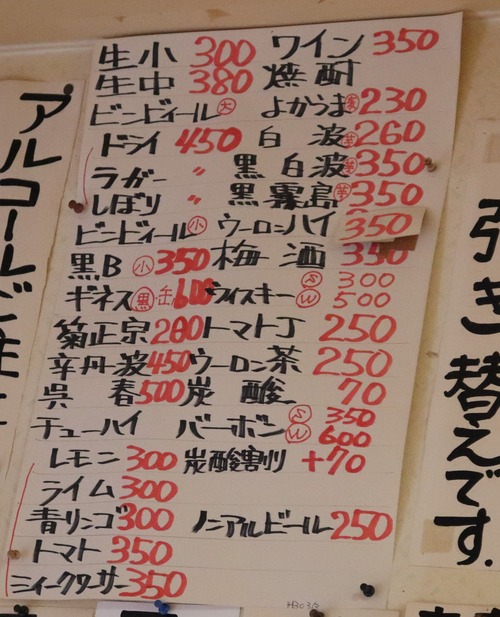 生小 300
生中 380
ビンビール 大
ドライ 450
ラガー 〃
しぼり 〃
ビンビール 小
黒B 小 350
ギネス 黒・缶 600
菊正宗 280
辛丹波 450
呉春 500
チューハイ
レモン 300
ライム 300
青リンゴ 300
トマト 350
シークワーサー 350
ワイン 350
焼酎
よかうま 麦 230
白波 芋 260
黒白波 芋 350
黒霧島 芋 350
ウーロンハイ 350
梅酒 350
ウイスキー S 300
W 500
トマトJ 250
ウーロン茶 250
炭酸 70
バーボン S 350
W 600
炭酸割り +70
ノンアルビール 250
アルコールご注
引き替えです.